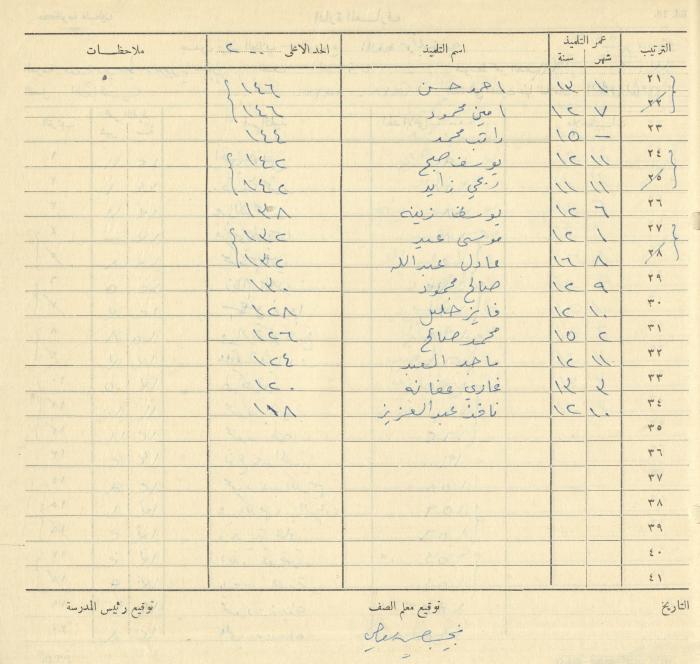 الترتيب عمر التلميذ شهر سنة اسم التلميذ الحد الاعلى ٢٠٠ ملاحظات
٢١ ٧ ١٣ احمد حسن ١٤٦
٢٢ ٧ ١٢ امين محمود ١٤٦
٢٣ — ١٥ راتب محمد ١٤٤
٢٤ ١١ ١٢ يوسف صبح ١٤٢
٢٥ ١١ ١١ ربحي زايد ١٤٢
٢٦ ٦ ١٢ يوسف زينه ١٣٨
٢٧ ١ ١٢ موسى عيد ١٣٢
٢٨ ٨ ١٦ عادل عبدالله ١٣٢
٢٩ ٩ ١٢ صالح محمود ١٣٠
٣٠ ١٠ ١٢ فايز خليل ١٢٨
٣١ ٢ ١٥ محمد صالح ١٢٦
٣٢ ١١ ١٢ ماجد العبد ١٢٤
٣٣ ٣ ١٣ غازي عفانه ١٢٠
٣٤ ١٠ ١٢ نافذ عبدالعزيز ١١٨
٣٥
٣٦
٣٧
٣٨
٣٩
٤٠
٤١
التاريخ توقيع معلم الصف توقيع رئيس المدرسة